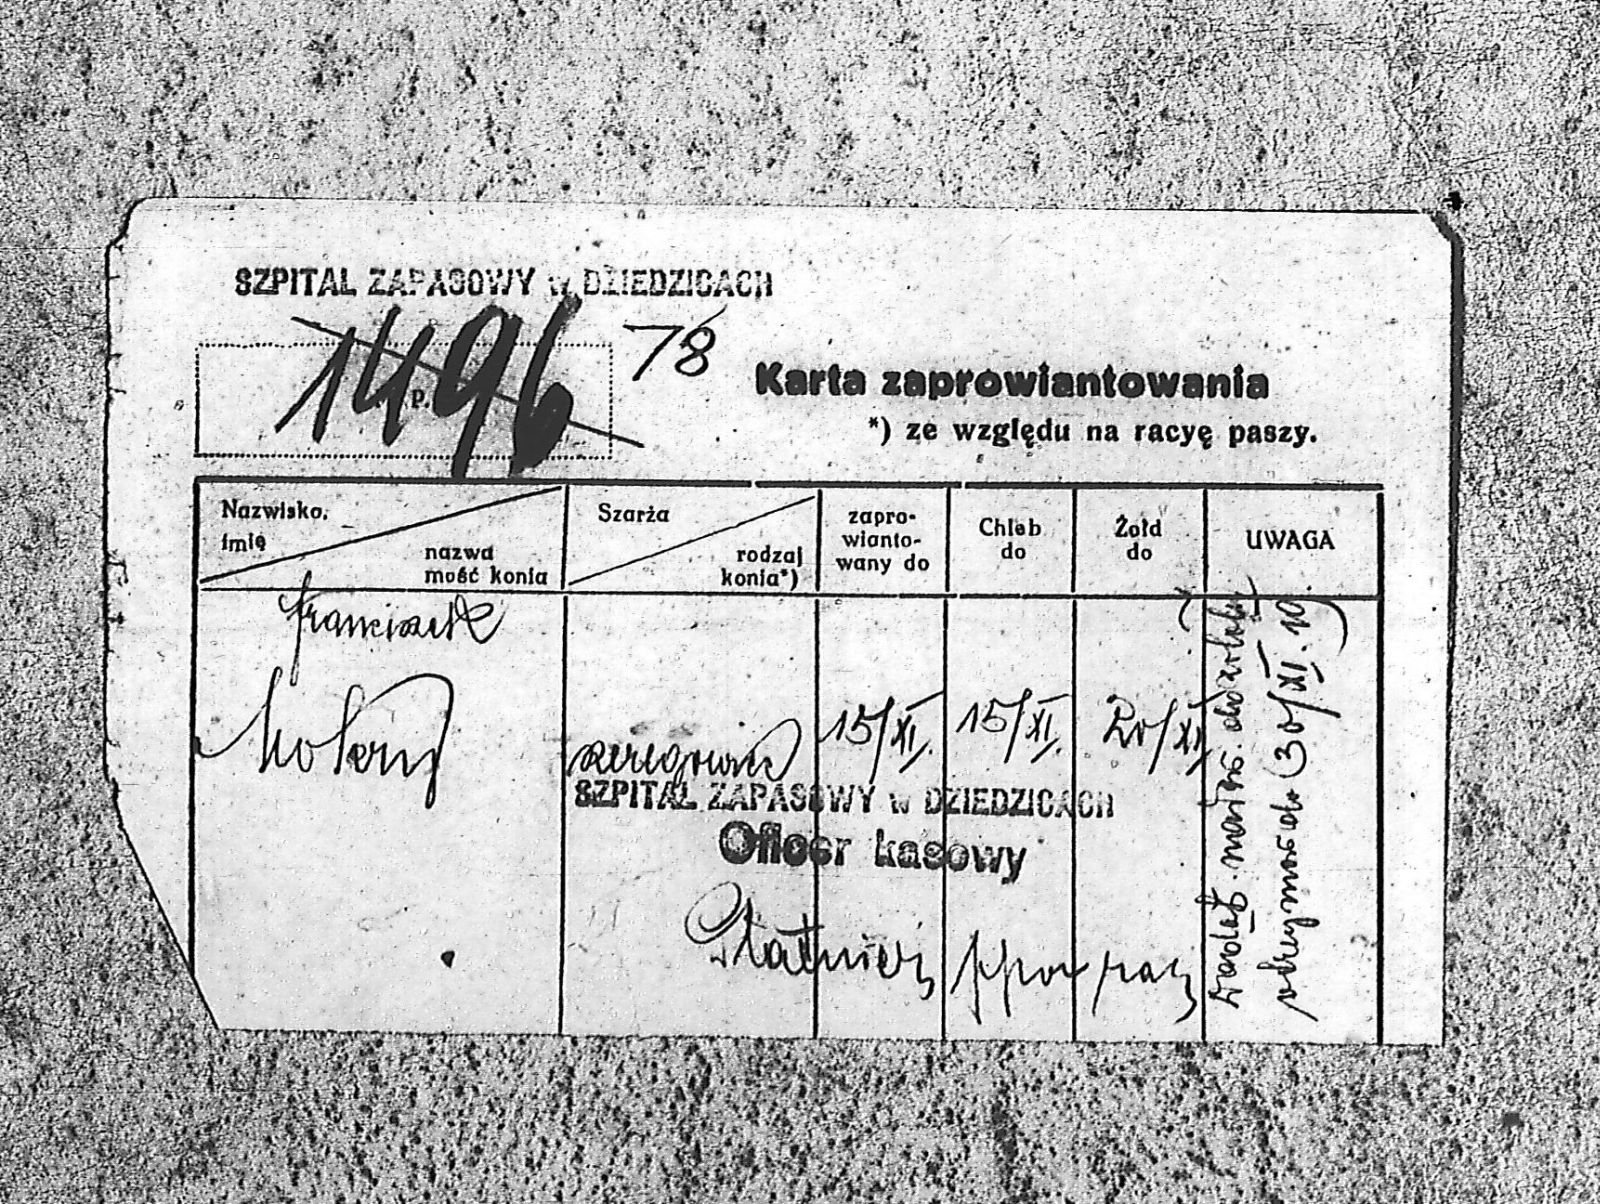 SZPITAL ZAPASOWY w DZIEDZICACH
1496
78
p.
Karta zaprowiantowania
*) ze względu na racyę paszy.
Nazwisko,
imię
nazwa
mość konia
Szarża
rodzaj
konia*)
zapro-
wianto-
wany do
Chleb
do
Żołd
do
UWAGA
Franciszek
szeregowiec
15/XI.
15/XI.
20/XI
SZPITAL ZAPASOWY w DZIEDZICACH
Oficer kasowy
30/XI.